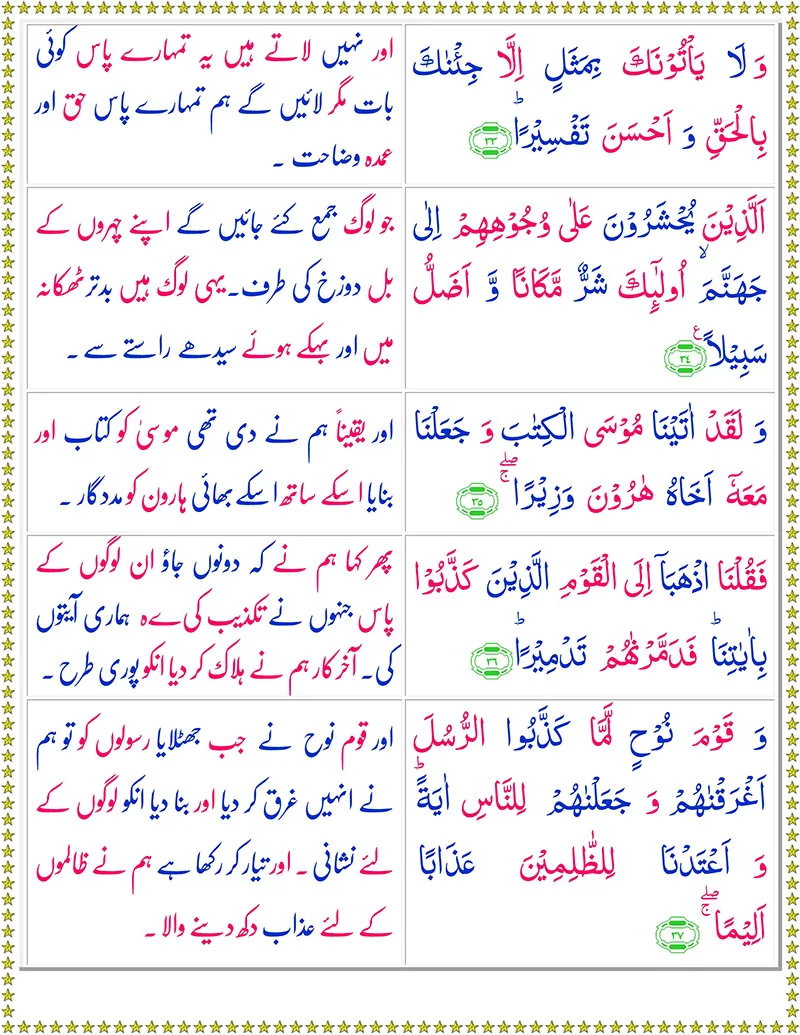 وَ لَا یَاْتُوْنَكَ بِمَثَلٍ اِلَّا جِئْنٰكَ
بِالْحَقِّ وَ اَحْسَنَ تَفْسِیْرًاؕ ۝۳۳
اور نہیں لاتے ہیں یہ تمہارے پاس کوئی
بات مگر لائیں گے ہم تمہارے پاس حق اور
عمدہ وضاحت ۔
اَلَّذِیْنَ یُحْشَرُوْنَ عَلٰی وُجُوْهِهِمْ اِلٰی
جَهَنَّمَۙ اُولٰٓىِٕكَ شَرٌّ مَّكَانًا وَّ اَضَلُّ
سَبِیْلًا۠ ۝۳۴ ع
جو لوگ جمع کئے جائیں گے اپنے چہروں کے
بل دوزخ کی طرف۔یہی لوگ ہیں بدتر ٹھکانہ
میں اور بہکے ہوئے سیدھے راستے سے ۔
وَ لَقَدْ اٰتَیْنَا مُوْسَی الْكِتٰبَ وَ جَعَلْنَا
مَعَهٗۤ اَخَاهُ هٰرُوْنَ وَزِیْرًاۚۖ ۝۳۵
اور یقیناً ہم نے دی تھی موسیٰ کو کتاب اور
بنایا اسکے ساتھ اسکے بھائی ہارون کو مددگار ۔
فَقُلْنَا اذْهَبَاۤ اِلَی الْقَوْمِ الَّذِیْنَ كَذَّبُوْا
بِاٰیٰتِنَاؕ فَدَمَّرْنٰهُمْ تَدْمِیْرًاؕ ۝۳۶
پھر کہا ہم نے کہ دونوں جاؤ ان لوگوں کے
پاس جنہوں نے تکذیب کی ےہ ہماری آیتوں
کی۔ آخر کار ہم نے ہلاک کر دیا انکو پوری طرح ۔
وَ قَوْمَ نُوْحٍ لَّمَّا كَذَّبُوا الرُّسُلَ
اَغْرَقْنٰهُمْ وَ جَعَلْنٰهُمْ لِلنَّاسِ اٰیَةًؕ
وَ اَعْتَدْنَا لِلظّٰلِمِیْنَ عَذَابًا
اَلِیْمًاۚۖ ۝۳۷
اور قوم نوح نے جب جھٹلایا رسولوں کو تو ہم
نے انہیں غرق کر دیا اور بنا دیا انکو لوگوں کے
لئے نشانی ۔ اور تیار کر رکھا ہے ہم نے ظالموں
کے لئے عذاب دکھ دینے والا ۔